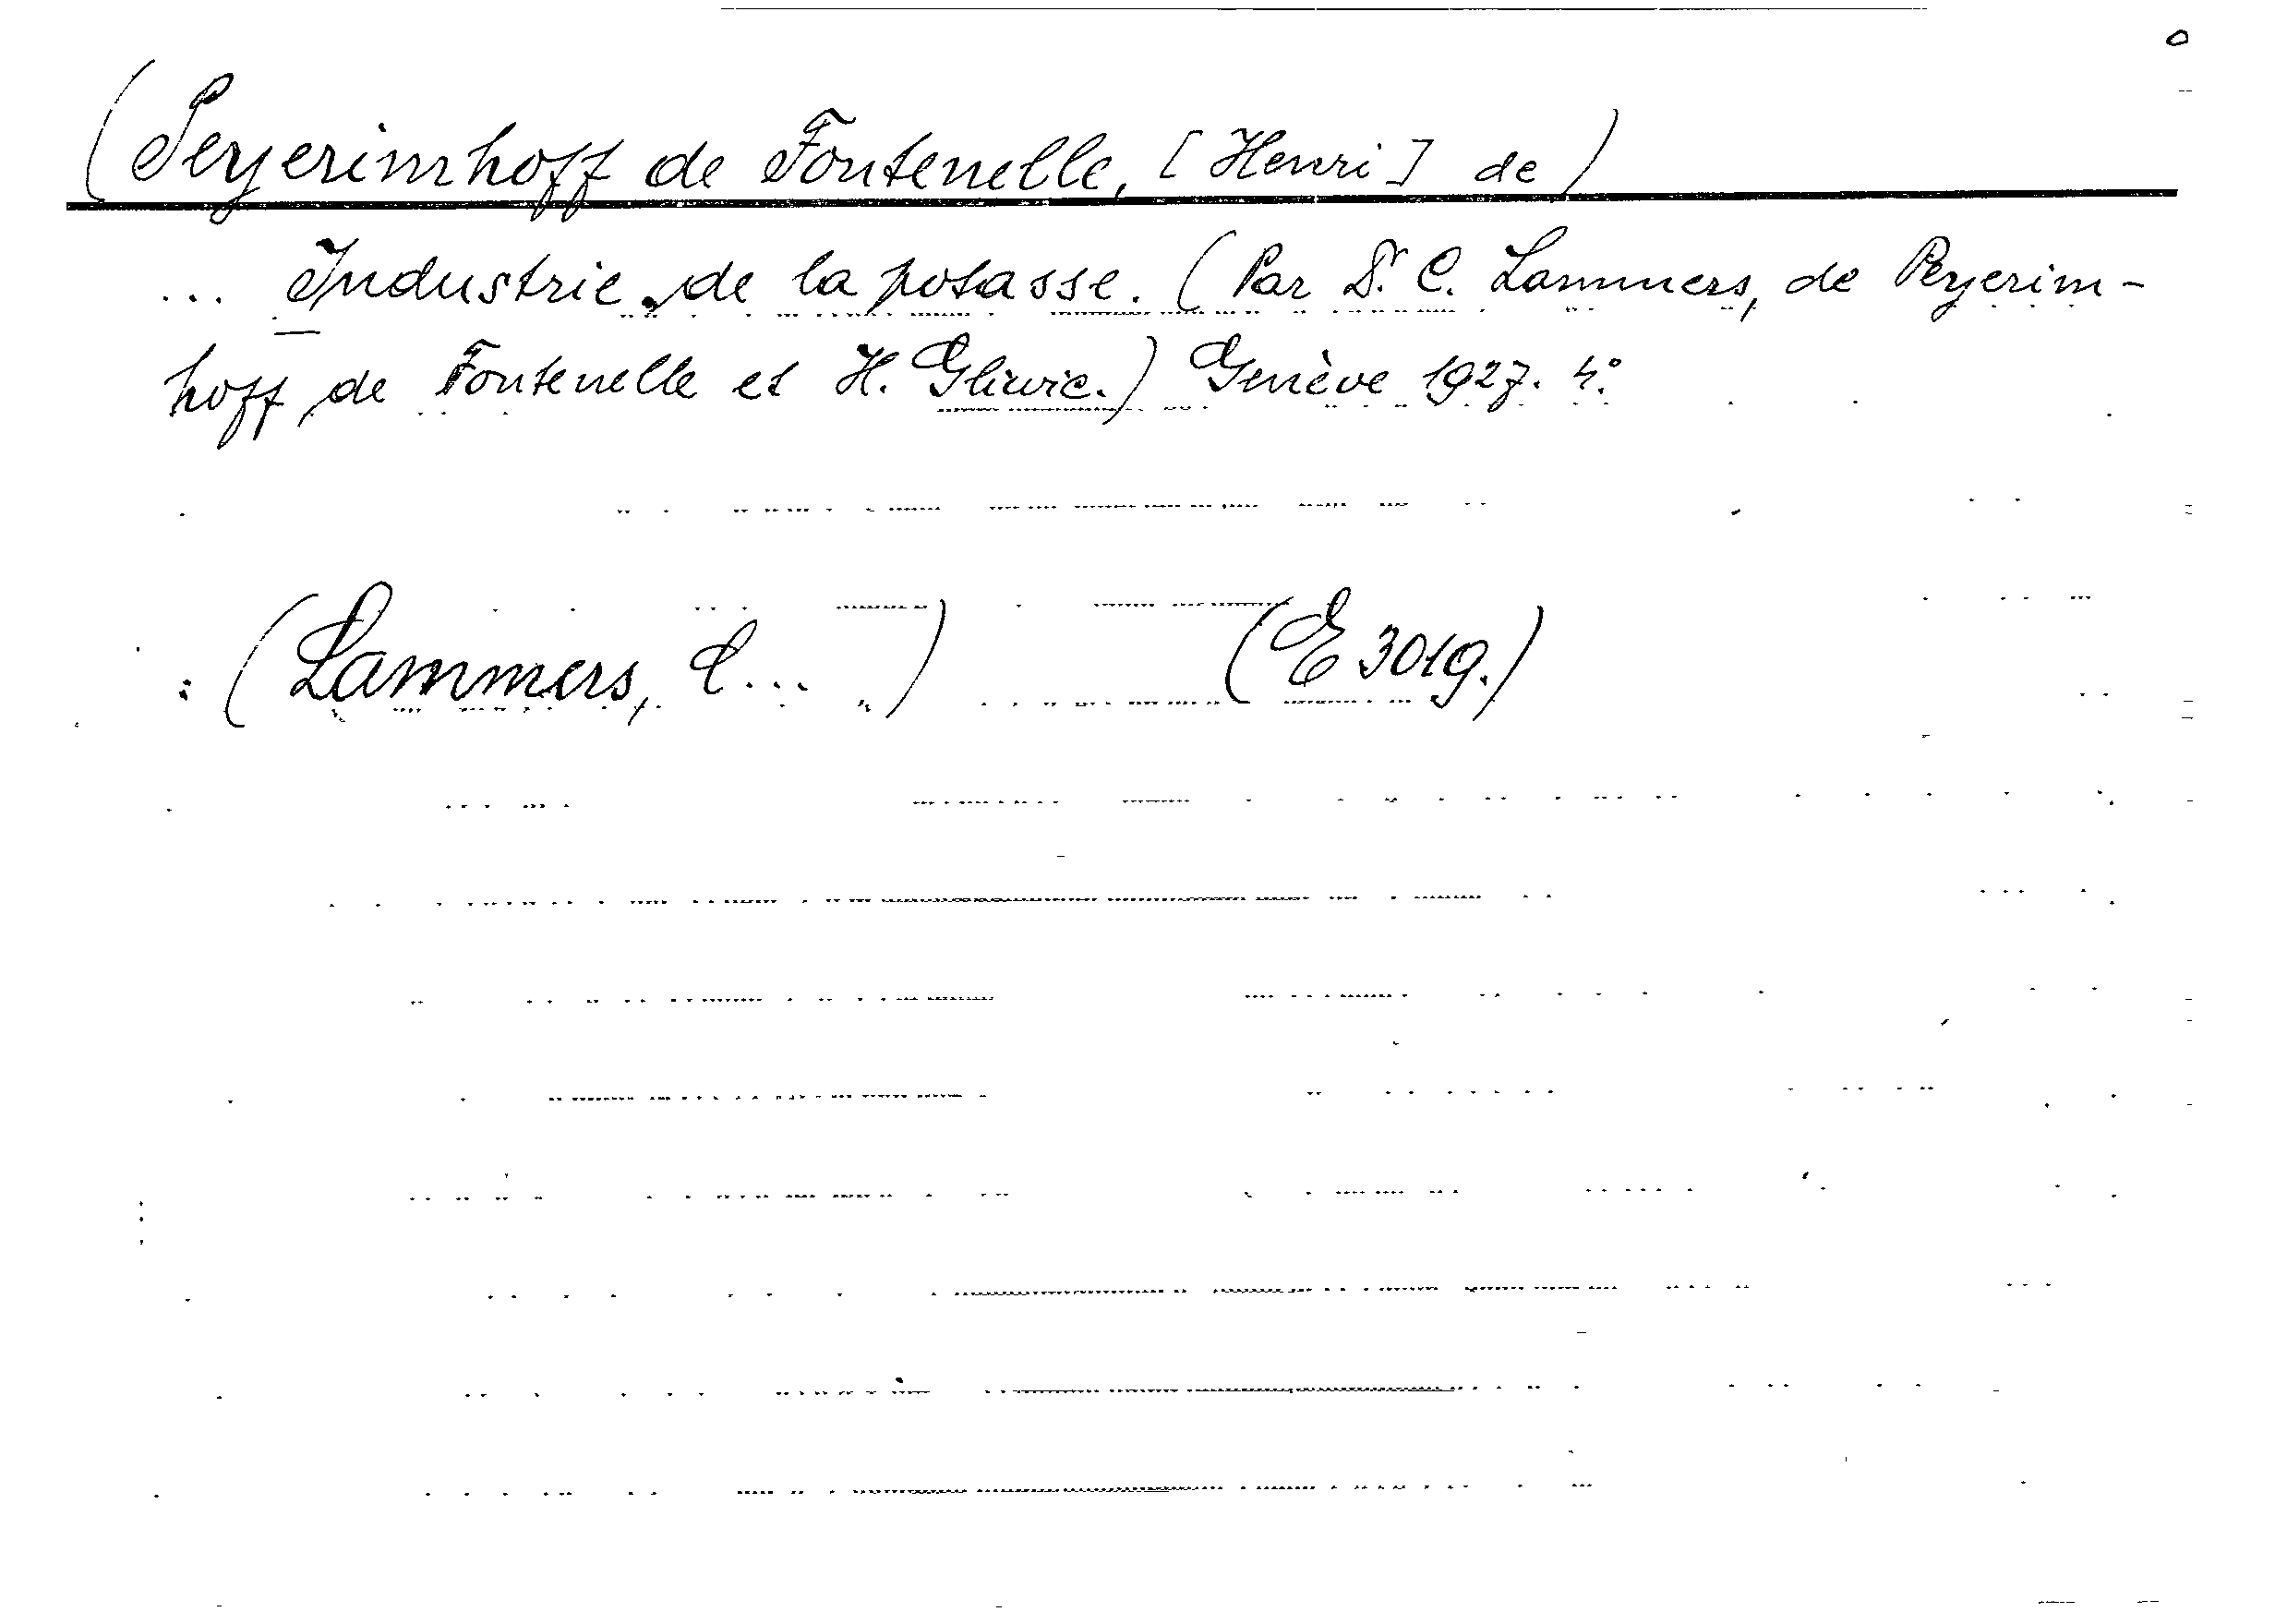 (Peyerimhoff de Fontenelle, [Henri] de)
... Industrie de la potasse. (Par Dr. C. Lammers, de Peyerim-
hoff de Fontenelle et H. Gliwic.) Genève 1927. 4°.
: (Lammers, C... .) (E 3019.)